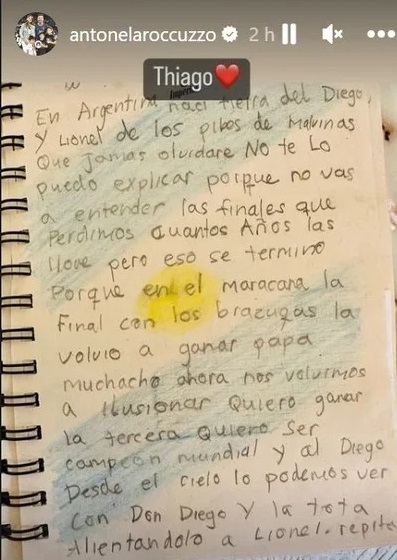 antonelaroccuzzo 2 h
Thiago
En Argentina naci tierra del Diego,
Y Lionel de los pibes de Malvinas
Que jamas olvidare NO te Lo
puedo explicar porque no vas
a entender las finales que
Perdimos cuantos Años las
llore pero eso se termino
Porque en el maracana la
Final con los brazugas la
volvio a ganar papa
muchacho ahora nos volvimos
a ilusionar Quiero ganar
la tercera Quiero Ser
campeon mundial y al Diego
Desde el cielo lo podemos ver
con Don Diego Y la tota
Alientandolo a Lionel. repita